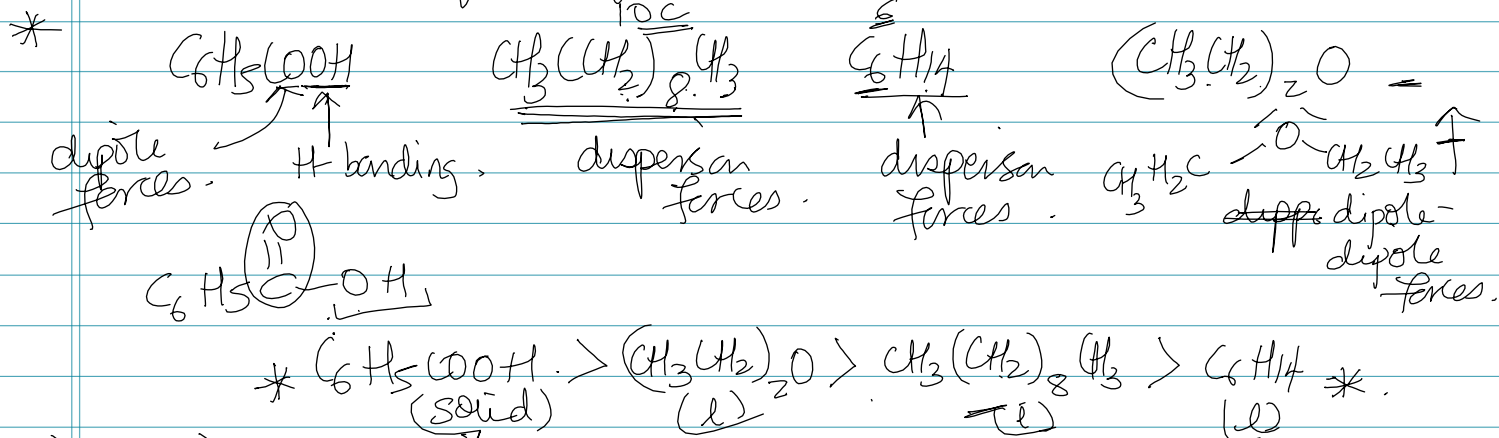 10C 6
* C6H5COOH CH3(CH2)8CH3 C6H14 (CH3CH2)2O
dipole forces. H-bonding. dispersion forces. dispersion forces. CH3H2C O CH2CH3
dipole-
dipole
forces.
O
C6H5C-OH
* C6H5COOH. > (CH3CH2)2O > CH3(CH2)8CH3 > C6H14 *.
(solid) (l) (l) (l)